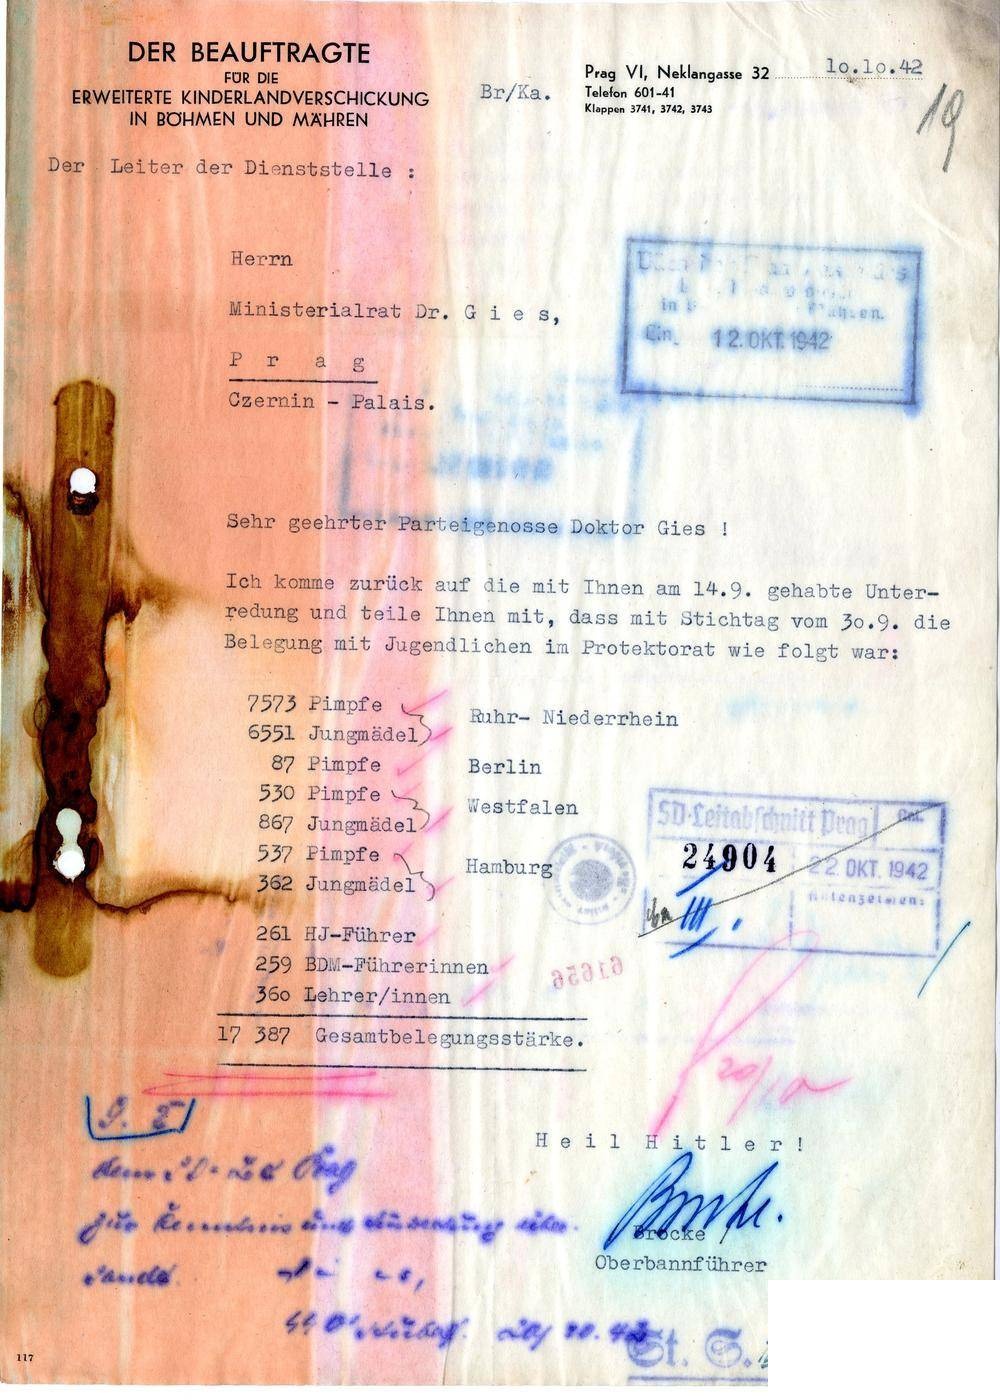 DER BEAUFTRAGTE
FÜR DIE
ERWEITERTE KINDERLANDVERSCHICKUNG
IN BÖHMEN UND MÄHREN
Br/Ka.
Prag VI, Neklangasse 32 10.10.42
Telefon 601-41
Klappen 3741, 3742, 3743
19
Der Leiter der Dienststelle :
Herrn
Ministerialrat Dr. G i e s,
P r a g
Czernin - Palais.
in
Ein. 12. OKT. 1942
Sehr geehrter Parteigenosse Doktor Gies !
Ich komme zurück auf die mit Ihnen am 14.9. gehabte Unter-
redung und teile Ihnen mit, dass mit Stichtag vom 3o.9. die
Belegung mit Jugendlichen im Protektorat wie folgt war:
7573 Pimpfe
6551 Jungmädel
Ruhr- Niederrhein
87 Pimpfe Berlin
530 Pimpfe
867 Jungmädel
Westfalen
537 Pimpfe
362 Jungmädel
Hamburg
261 HJ-Führer
259 BDM-Führerinnen
36o Lehrer/innen
17 387 Gesamtbelegungsstärke.
SD-Leitabschnitt Prag
24904
22. OKT. 1942
Aktenzeichen:
III
61656
20/10
H e i l H i t l e r !
Brocke
Oberbannführer
G. R.
dem SD-LA Prag
zur Kenntnis und
20/10.42
St. S.
117